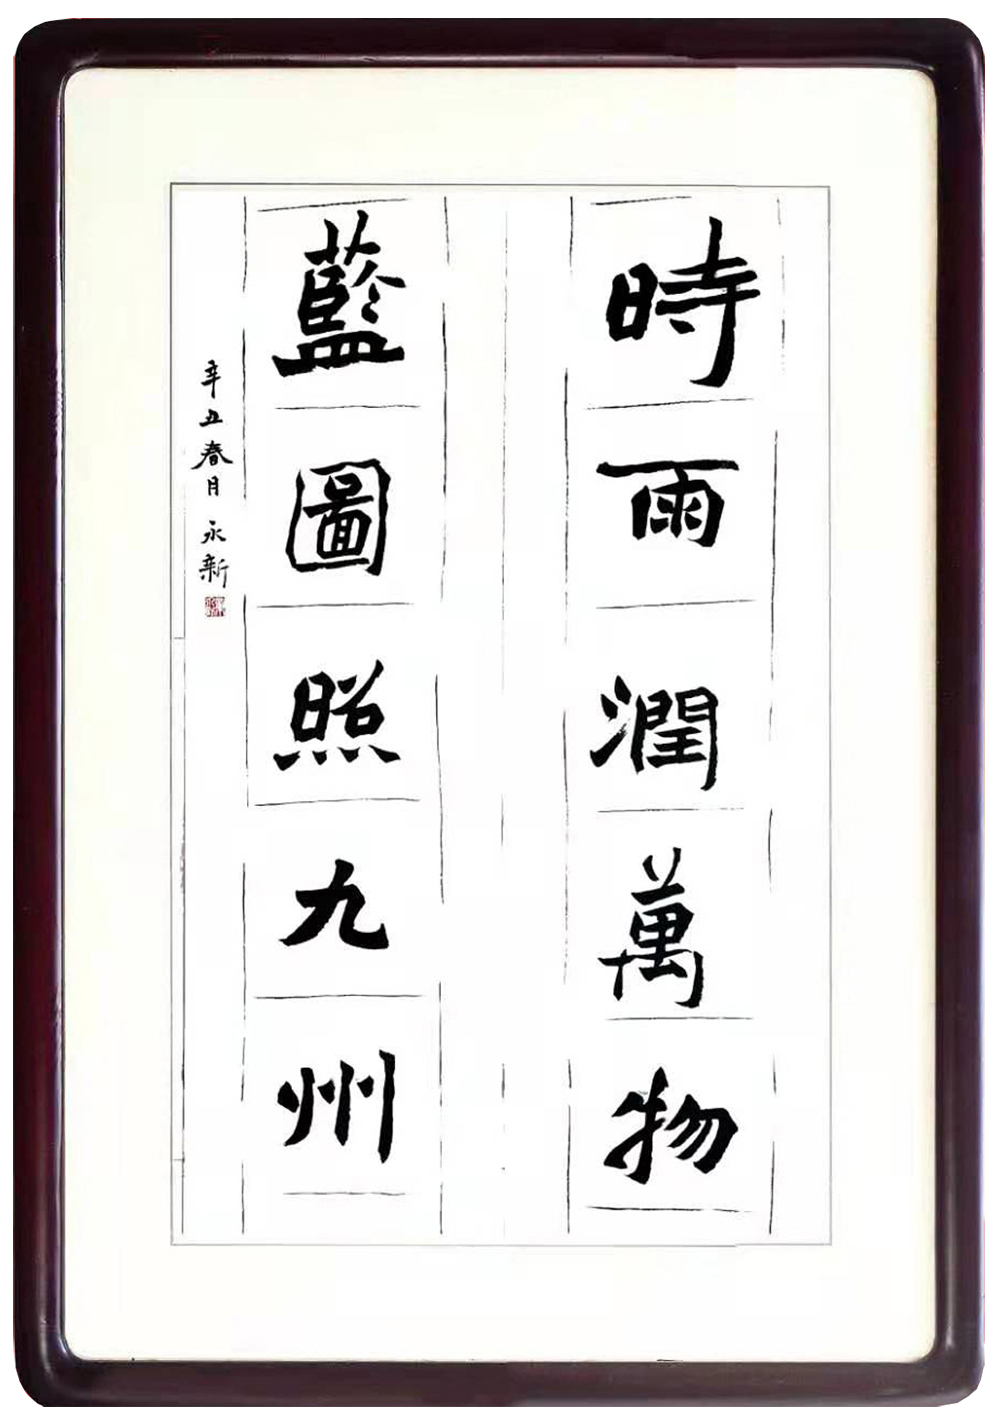 時雨潤萬物
藍圖照九州
辛丑春月 永新